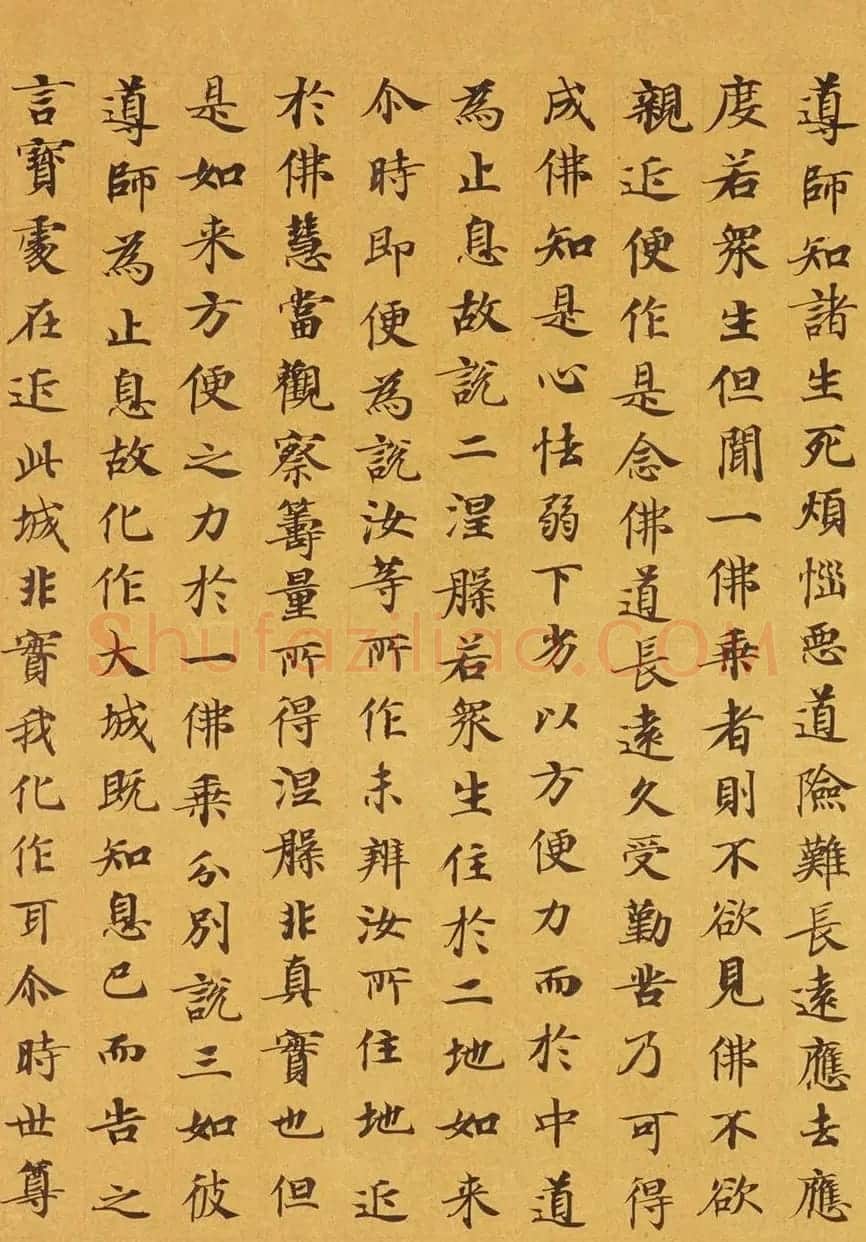 導師知諸生死煩惱惡道險難長遠應去應
度若衆生但聞一佛乘者則不欲見佛不欲
親近便作是念佛道長遠久受勤苦乃可得
成佛知是心怯弱下劣以方便力而於中道
為止息故説二涅槃若衆生住於二地如来
尒時即便為説汝等所作未辨汝所住地近
於佛慧當觀察籌量所得涅槃非真實也但
是如来方便之力於一佛乗分別説三如彼
導師為止息故化作大城既知息已而告之
言寶處在近此城非實我化作耳尒時世尊
Shufaziliao.COM